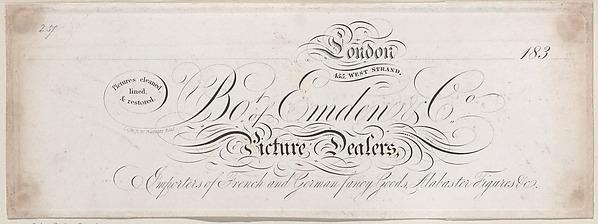 2.57
London
455, WEST STRAND.
183
Pictures cleaned,
lined,
& restored.
Bo.t of Emden & Co.
Picture Dealers,
Importers of French and German fancy Goods, Alabaster Figures &c.